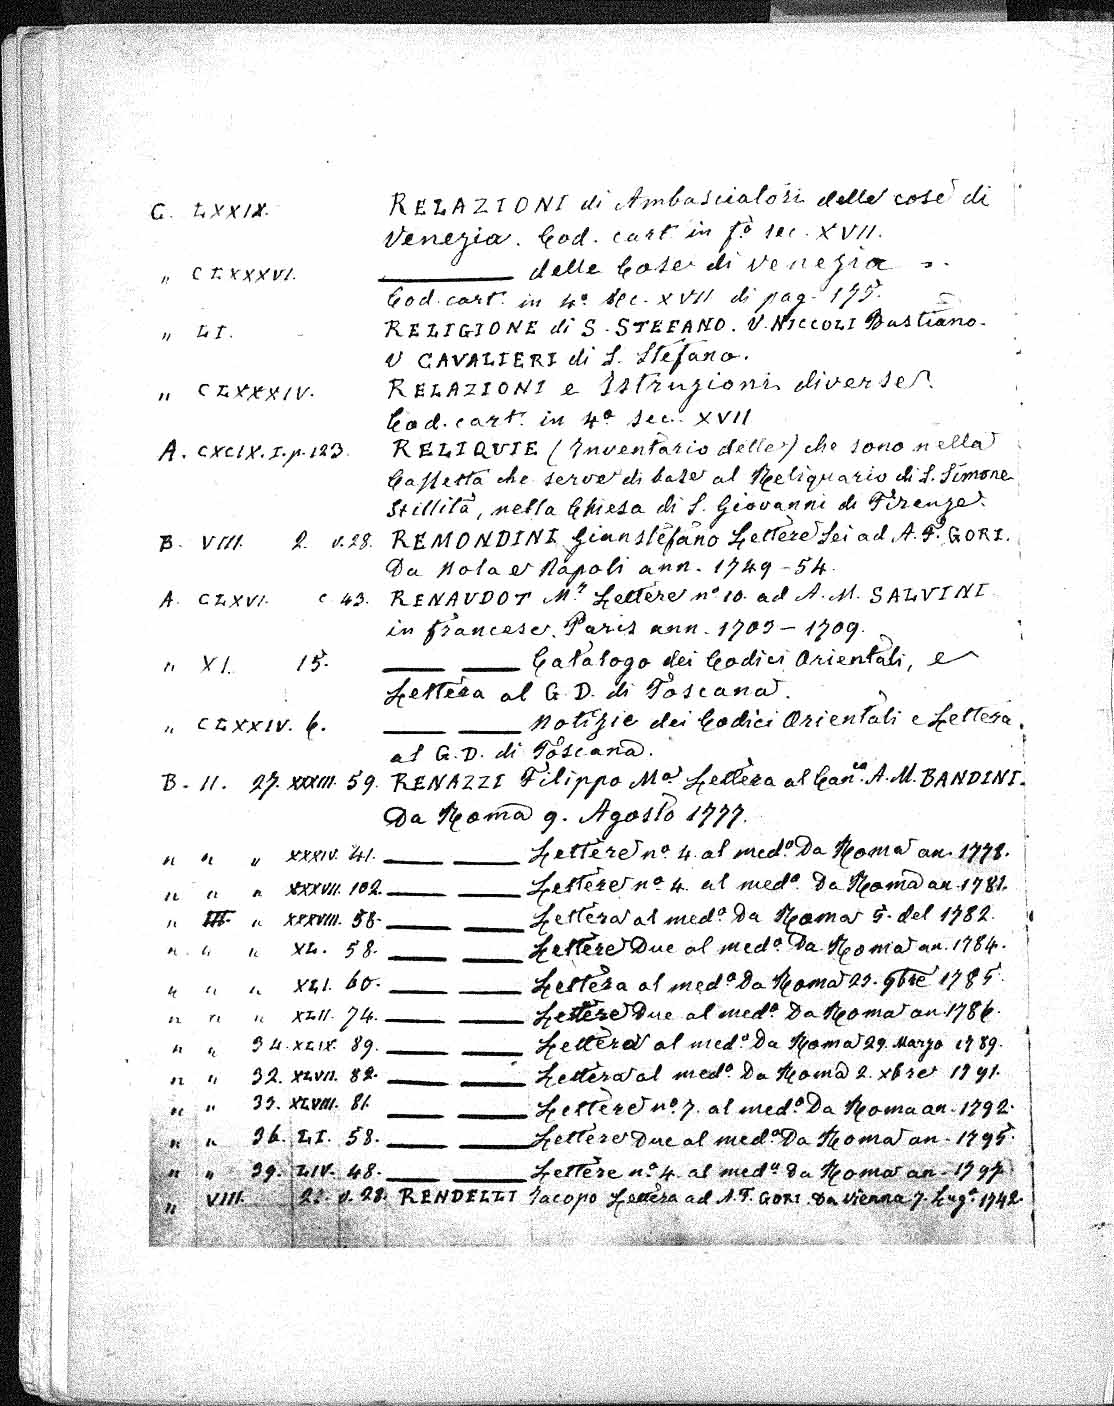 C. LXXIX. RELAZIONI di Ambasciatori delle cose di
Venezia. Cod. cart. in fo. sec. XVII.
„ CLXXXVI. ——— delle Cose di Venezia
Cod. cart. in 4o. sec. XVII di pag. 175.
„ LI. RELIGIONE di S. STEFANO. V. NICCOLI Bastiano.
V CAVALIERI di S. Stefano.
„ CLXXXIV. RELAZIONI e Istruzioni diverse.
Cod. cart. in 4o sec. XVII
A. CXCIX. I. p. 123. RELIQUIE (Inventario delle) che sono nella
Cassetta che serve di base al Reliquario di S. Simone
Stillita, nella Chiesa di S. Giovanni di Firenze.
B. VIII. 2. v. 28. REMONDINI Gianstefano Lettere Sei ad A. F. GORI.
Da Nola e Napoli ann. 1749-54.
A. CLXVI. c 43. RENAUDOT Mr. Lettere no. 10. ad A. M. SALVINI
in francese. Paris ann. 1703 - 1709.
„ XI. 15. —— —— Catalogo dei Codici Orientali, e
Lettera al G. D. di Toscana.
„ CLXXIV. 6. —— —— Notizie dei Codici Orientali e Lettera
al G. D. di Toscana.
B. II. 27. XXXIII. 59. RENAZZI Filippo Ma Lettera al Canco. A. M. BANDINI.
Da Roma 9. Agosto 1777.
„ „ „ XXXIV. 41. —— —— Lettere no. 4. al medo. Da Roma an. 1778.
„ „ „ XXXVII. 102. —— —— Lettere no. 4. al medo. Da Roma an. 1781.
„ III. „ XXXVIII. 58. —— —— Lettera al medo. Da Roma 5. del 1782.
„ „ „ XL. 58. —— —— Lettere Due al medo. Da Roma an. 1784.
„ „ „ XLI. 60. —— —— Lettera al medo. Da Roma 29. 9bre 1785.
„ „ „ XLII. 74. —— —— Lettere Due al medo. Da Roma an. 1786.
„ „ 34. XLIX. 89. —— —— Lettera al medo. Da Roma 29. Marzo 1789.
„ „ 32. XLVII. 82. —— —— Lettera al medo. Da Roma 2. xbre 1791.
„ „ 33. XLVIII. 81. —— —— Lettere no. 7. al medo. Da Roma an. 1792.
„ „ 36. LI. 58. —— —— Lettere Due al medo. Da Roma an. 1795.
„ „ 39. LIV. 48. —— —— Lettere no. 4. al medo. Da Roma an. 1797.
„ VIII. v. 28. RENDELLI Jacopo Lettera ad A. F. GORI. Da Vienna 7. Lugo. 1742.